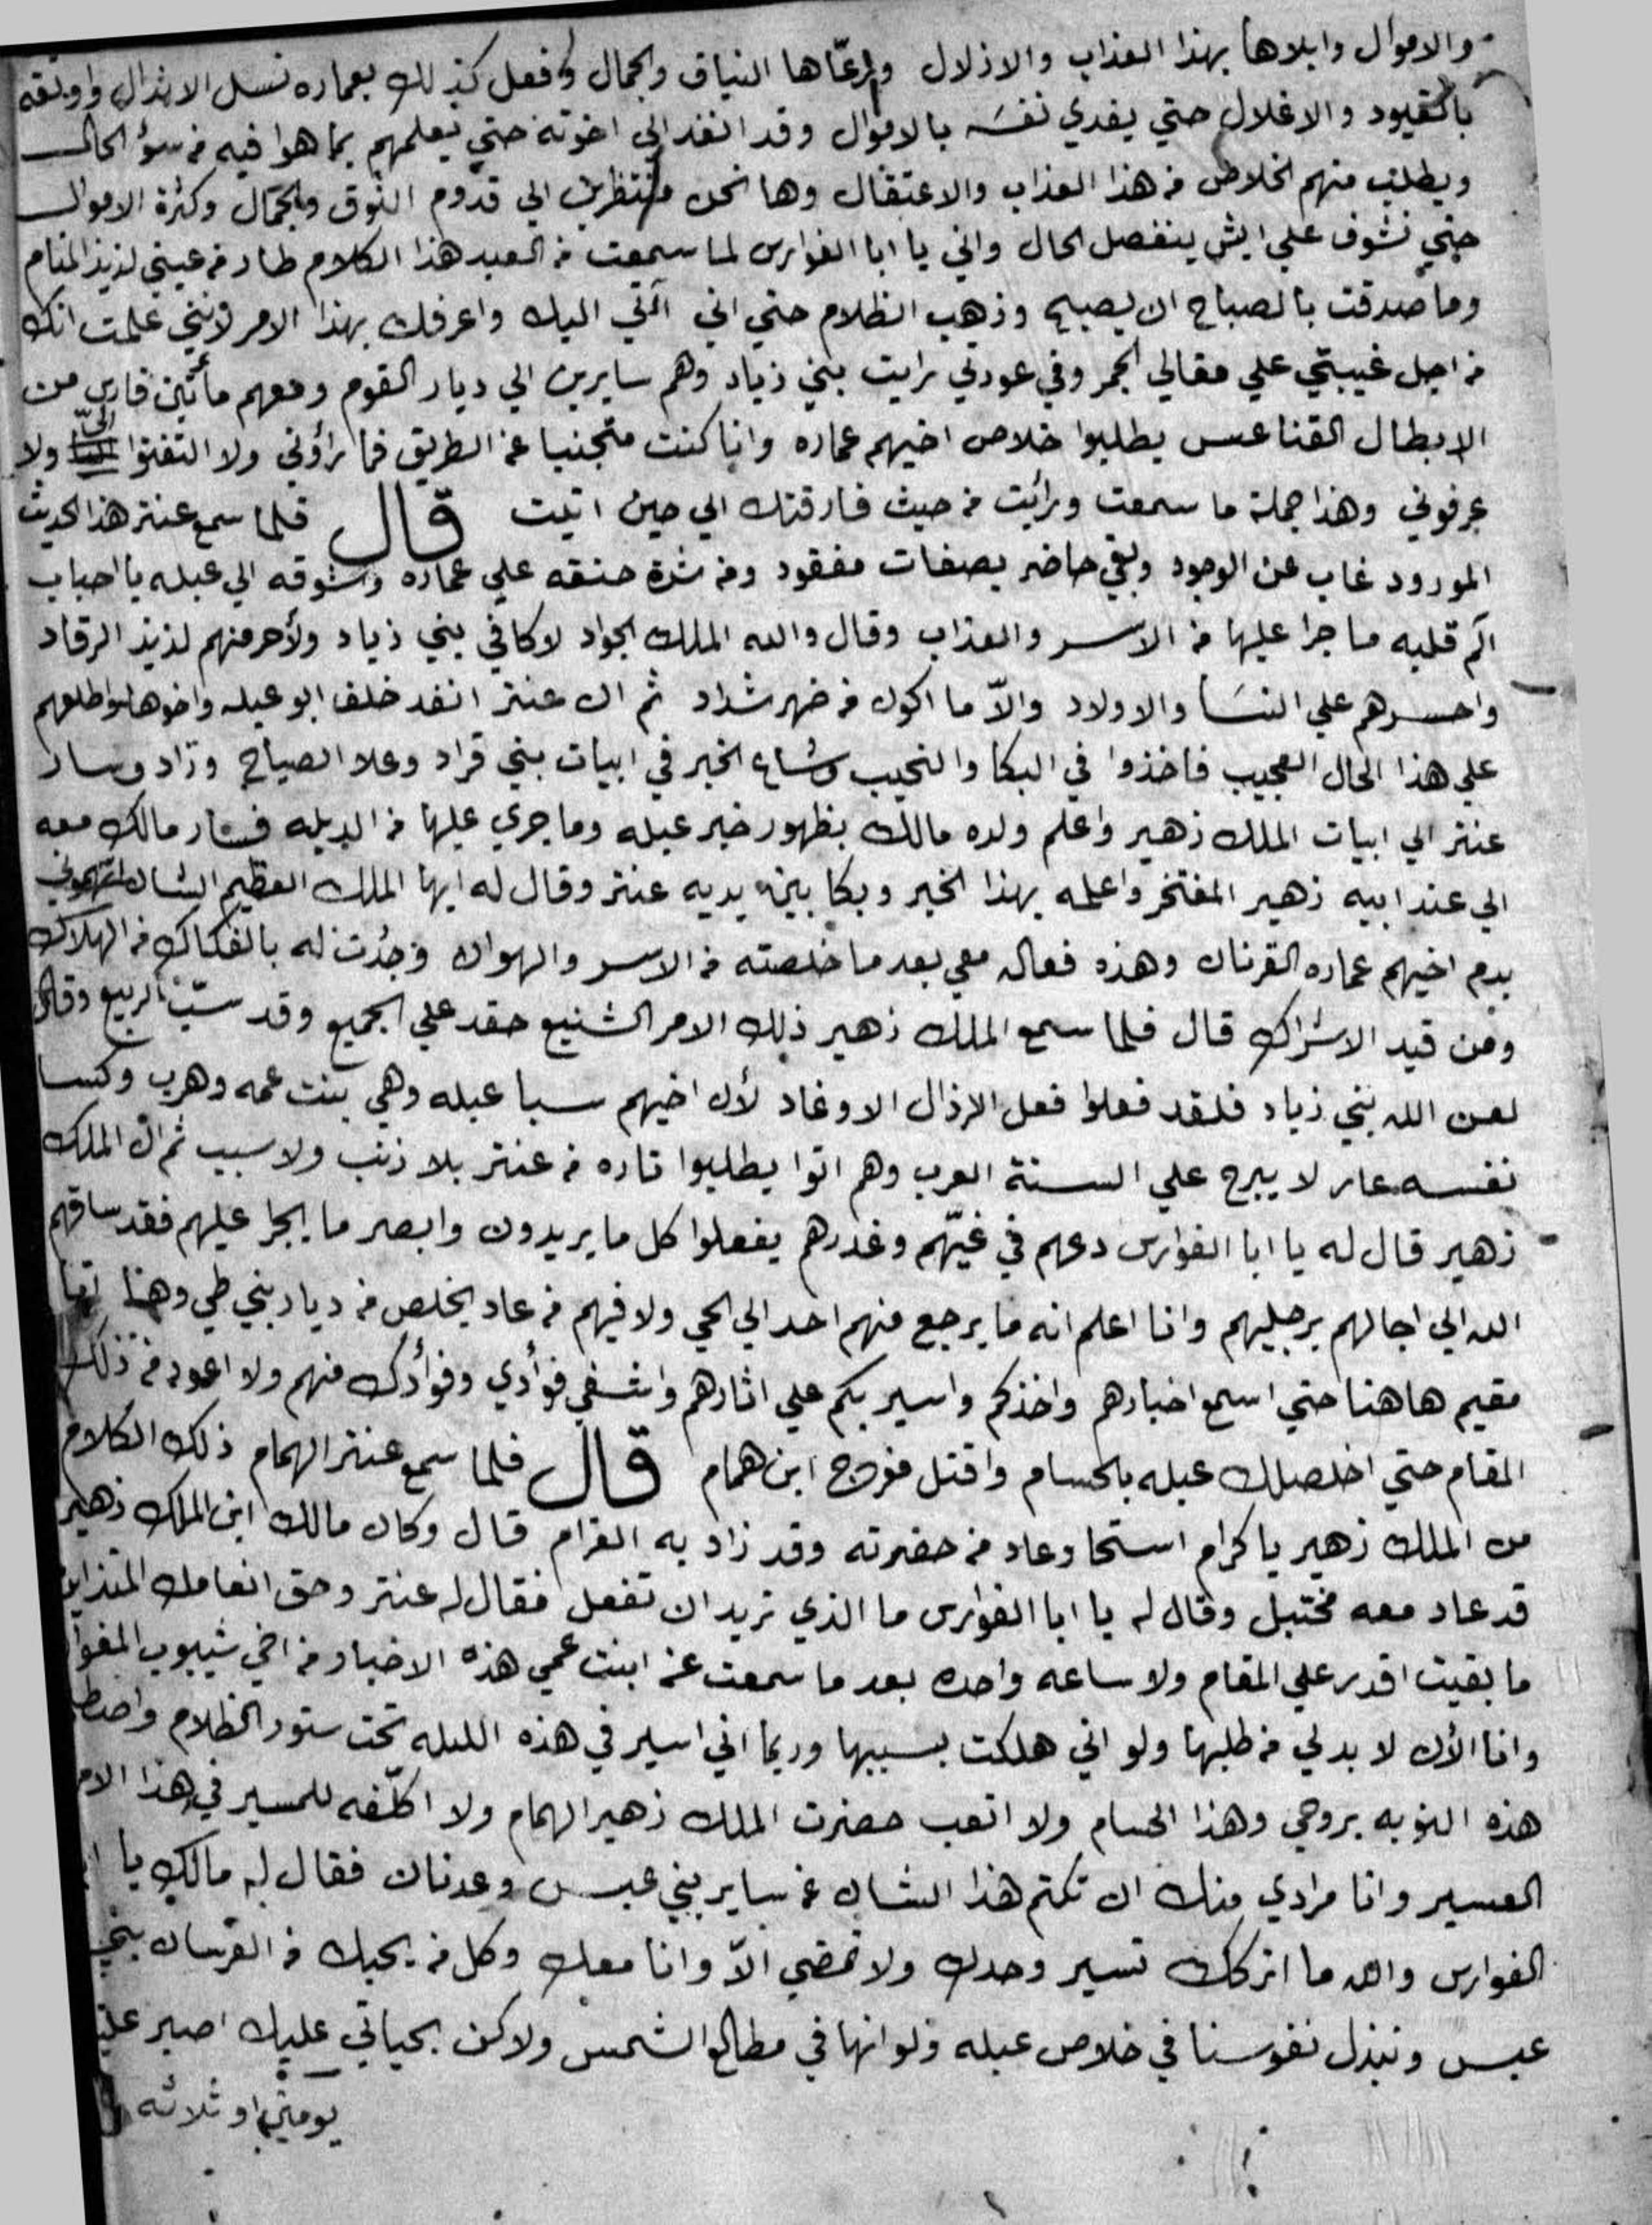 والاموال وابلاها بهذا العذاب والاذلال وارعّاها النياق والجمال وفعل كذلك بعماره نسل الانذال واوثقه
بالقيود والاغلال حتي يفدي نفسه بالاموال وقد انفد الي اخوته حتي يعلمهم بما هوا فيه من سؤ الحال
ويطلب منهم الخلاص من هذا العذاب والاعتقال وها نحن منتظرين الي قدوم النوق والجمال وكثرة الاموال
حتي نشوف علي ايش ينفصل الحال واني يا ابا الفوارس لما سمعت من العبد هذا الكلام طار من عيني لذيذ المنام
وما صدقت بالصباح ان يصبح وذهب الظلام حتي اني آتي اليك واعرفك بهذا الامر لانني علمت انك
من اجل غيبتي علي مقالي الجمر وفي عودتي رايت بني زياد وهم سايرين الي ديار القوم ومعهم مأتين فارس من
الابطال القناعس يطلبوا خلاص اخيهم عماره وانا كنت متجنبا عن الطريق فما رأوني ولا التفتوا اليّ ولا
عرفوني وهذا جملة ما سمعت ورائت من حيث فارقتك الي حين اتيت قال فلما سمع عنتر هذا الحديث
المورود غاب عن الوجود وبقي حاضر بصفات مفقود ومن شدة حنقه علي عماره وشوقه الي عبله يا احباب
آلم قلبه ما جرا عليها من الاسر والعذاب وقال والله الملك الجواد لاكافي بني زياد ولأحرمنهم لذيذ الرقاد
واحسرهم علي النسا والاولاد والاّ ما اكون من ضهر شداد ثم ان عنتر انفد خلف ابو عبله واخوها واطلعهم
علي هذا الحال العجيب فاخذوا في البكا والنحيب وشاع الخبر في ابيات بني قراد وعلا الصياح وزاد وسار
عنتر الي ابيات الملك زهير واعلم ولده مالك بظهور خبر عبله وما جري عليها من البليه فسار مالك معه
الي عند ابيه زهير المفتخر واعلمه بهذا الخبر وبكا بين يديه عنتر وقال له ايها الملك العظيم الشان اتهموني
بدم اخيهم عماره القرنان وهذه فعاله معي بعد ما خلصته من الاسر والهوان وجُدت له بالفكاك من الهلاك
ومن قيد الاشراك قال فلما سمع الملك زهير ذلك الامر الشنيع حقد علي الجميع وقد سبّ الربيع وقال
لعن الله بني زياد فلقد فعلوا فعل الرذال الاوغاد لأن اخيهم سبا عبله وهي بنت عمه وهرب وكسا
نفسه عار لا يبرح علي السنة العرب وهم اتوا يطلبوا تاره من عنتر بلا ذنب ولا سبب ثم ان الملك
زهير قال له يا ابا الفوارس دعهم في غيّهم وغدرهم يفعلوا كل ما يريدون وابصر ما ايجرا عليهم فقد ساقهم
الله الي اجالهم برجليهم وانا اعلم انه ما يرجع منهم احد الي الحي ولا فيهم من عاد يخلص من ديار بني طي وها انا
مقيم هاهنا حتي اسمع اخبارهم واخذكم واسير بكم علي اثارهم واشفي فوأدي وفوأدك منهم ولا اعود من ذلك
المقام حتي اخلصلك عبله بالحسام واقتل مفرج ابن همام قال فلما سمع عنتر الهمام ذلك الكلام
من الملك زهير يا كرام استحا وعاد من حضرته وقد زاد به الغرام قال وكان مالك ابن الملك زهير
قد عاد معه مختبل وقال له يا ابا الفوارس ما الذي تريد ان تفعل فقال له عنتر وحق انعامك
ما بقيت اقدر علي المقام ولا ساعه واحده بعد ما سمعت عن ابنت عمي هذه الاخبار من اخي شيبوب المغوار
وانا الأن لا بدلي من طلبها ولو اني هلكت بسببها وربما اني اسير في هذه الليله تحت ستور الظلام
هذه النوبه بروحي وهذا الحسام ولا اتعب حضرت الملك زهير الهمام ولا اكلّفه للمسير في هذا الامر
العسير وانا مرادي منك ان تكتم هذا الشان عن ساير بني عبس وعدنان فقال له مالك يا ابا
الفوارس والله ما اتركك تسير وحدك ولا تمضي الاّ وانا معك وكل من يحبك من الفرسان بني
عبس ونبذل نفوسنا في خلاص عبله ولو انها في مطالع الشمس ولاكن بحياتي عليك اصبر عليّ
يومين او ثلاثه